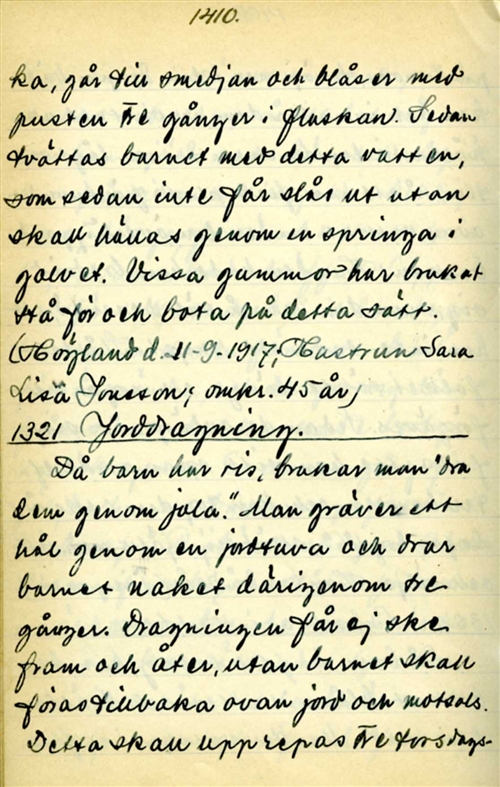 1410.
ka, går till smedjan och blåser med
pusten tre gånger i flaskan. Sedan
tvättas barnet med detta vatten,
som sedan inte får slås ut utan
skall hällas genom en springa i
golvet. Vissa gummor har brukat
stå för och bota på detta sätt.
(Högland d. 11-9-1917; Hustrun Sara
Lisa Jonsson; omkr. 45 år)
1321 Jorddragning.
Då barn har ris, brukar man "dra
dem genom jola." Man gräver ett
hål genom en jordtuva och drar
barnet naket därigenom tre
gånger. Dragningen får ej ske
fram och åter, utan barnet skall
föras tillbaka ovan jord och motsols.
Detta skall upprepas tre torsdags-